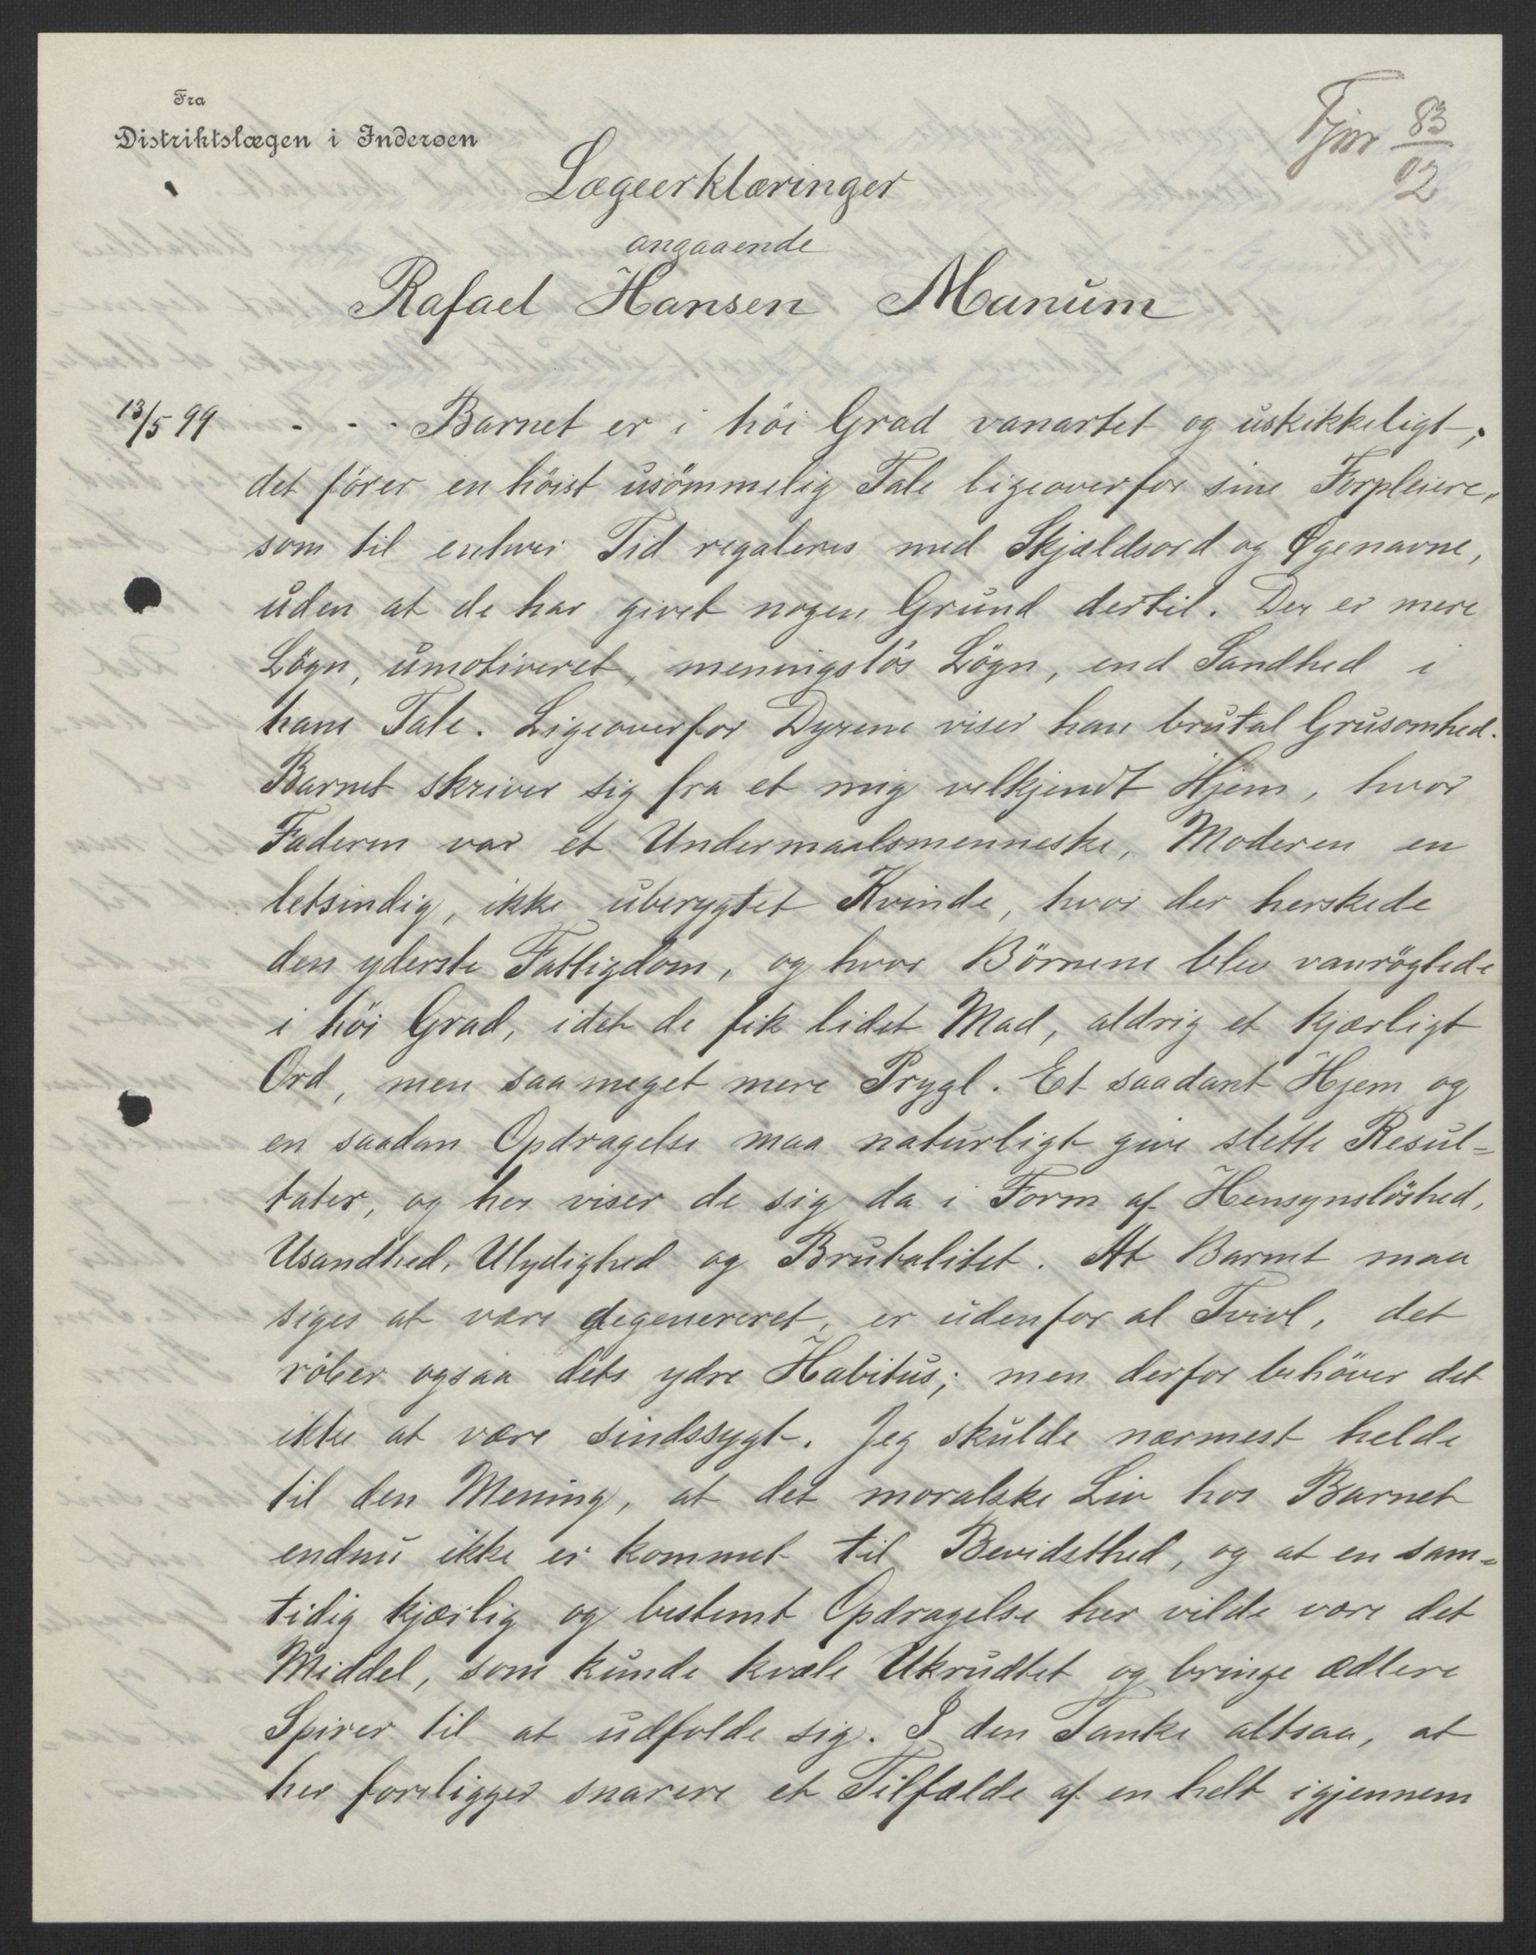 Fra
Distriktslægen i Inderøen
Fjnr 83/02
Lægeerklæringer
angaaende
Rafael Hansen Manum
13/5 99 - - - Barnet er i höi Grad vanartet og uskikkeligt;
det förer en höist usömmelig Tale ligeoverfor sine Forpleiere,
som til enhver Tid regaleres med Skjældsord og Øgenavne,
uden at de har givet nogen Grund dertil. Der er mere
Lögn, umotiveret, meningslös Lögn, end Sandhed i
hans Tale. Ligeoverfor Dyrene viser han brutal Grusomhed.
Barnet skriver sig fra et mig velkjendt Hjem, hvor
Faderen var et Undermaalsmenneske, Moderen en
letsindig, ikke uberygtet Kvinde, hvor der herskede
den yderste Fattigdom, og hvor Börnene blev vanrögtede
i höi Grad, idet de fik lidet Mad, aldrig et kjærligt
Ord, men saa meget mere Prygl. Et saadant Hjem og
en saadan Opdragelse maa naturligt give slette Resul=
tater, og her viser de sig da i Form af Hensynslöshed,
Usandhed, Ulydighed og Brutalitet. At Barnet maa
siges at være degenereret, er udenfor al Tvivl, det
röber ogsaa dets ydre Habitus; men derfor behöver det
ikke at være sindssygt. Jeg skulde nærmest helde
til den Mening, at det moralske Liv hos Barnet
endnu ikke er kommet til Bevidsthed, og at en sam=
tidig kjærlig og bestemt Opdragelse her vilde være det
Middel, som kunde kvæle Ukrudtet og bringe ædlere
Spirer til at udfolde sig. I den Tanke altsaa, at
her foreligger snarere et Tilfælde af en helt igjennem